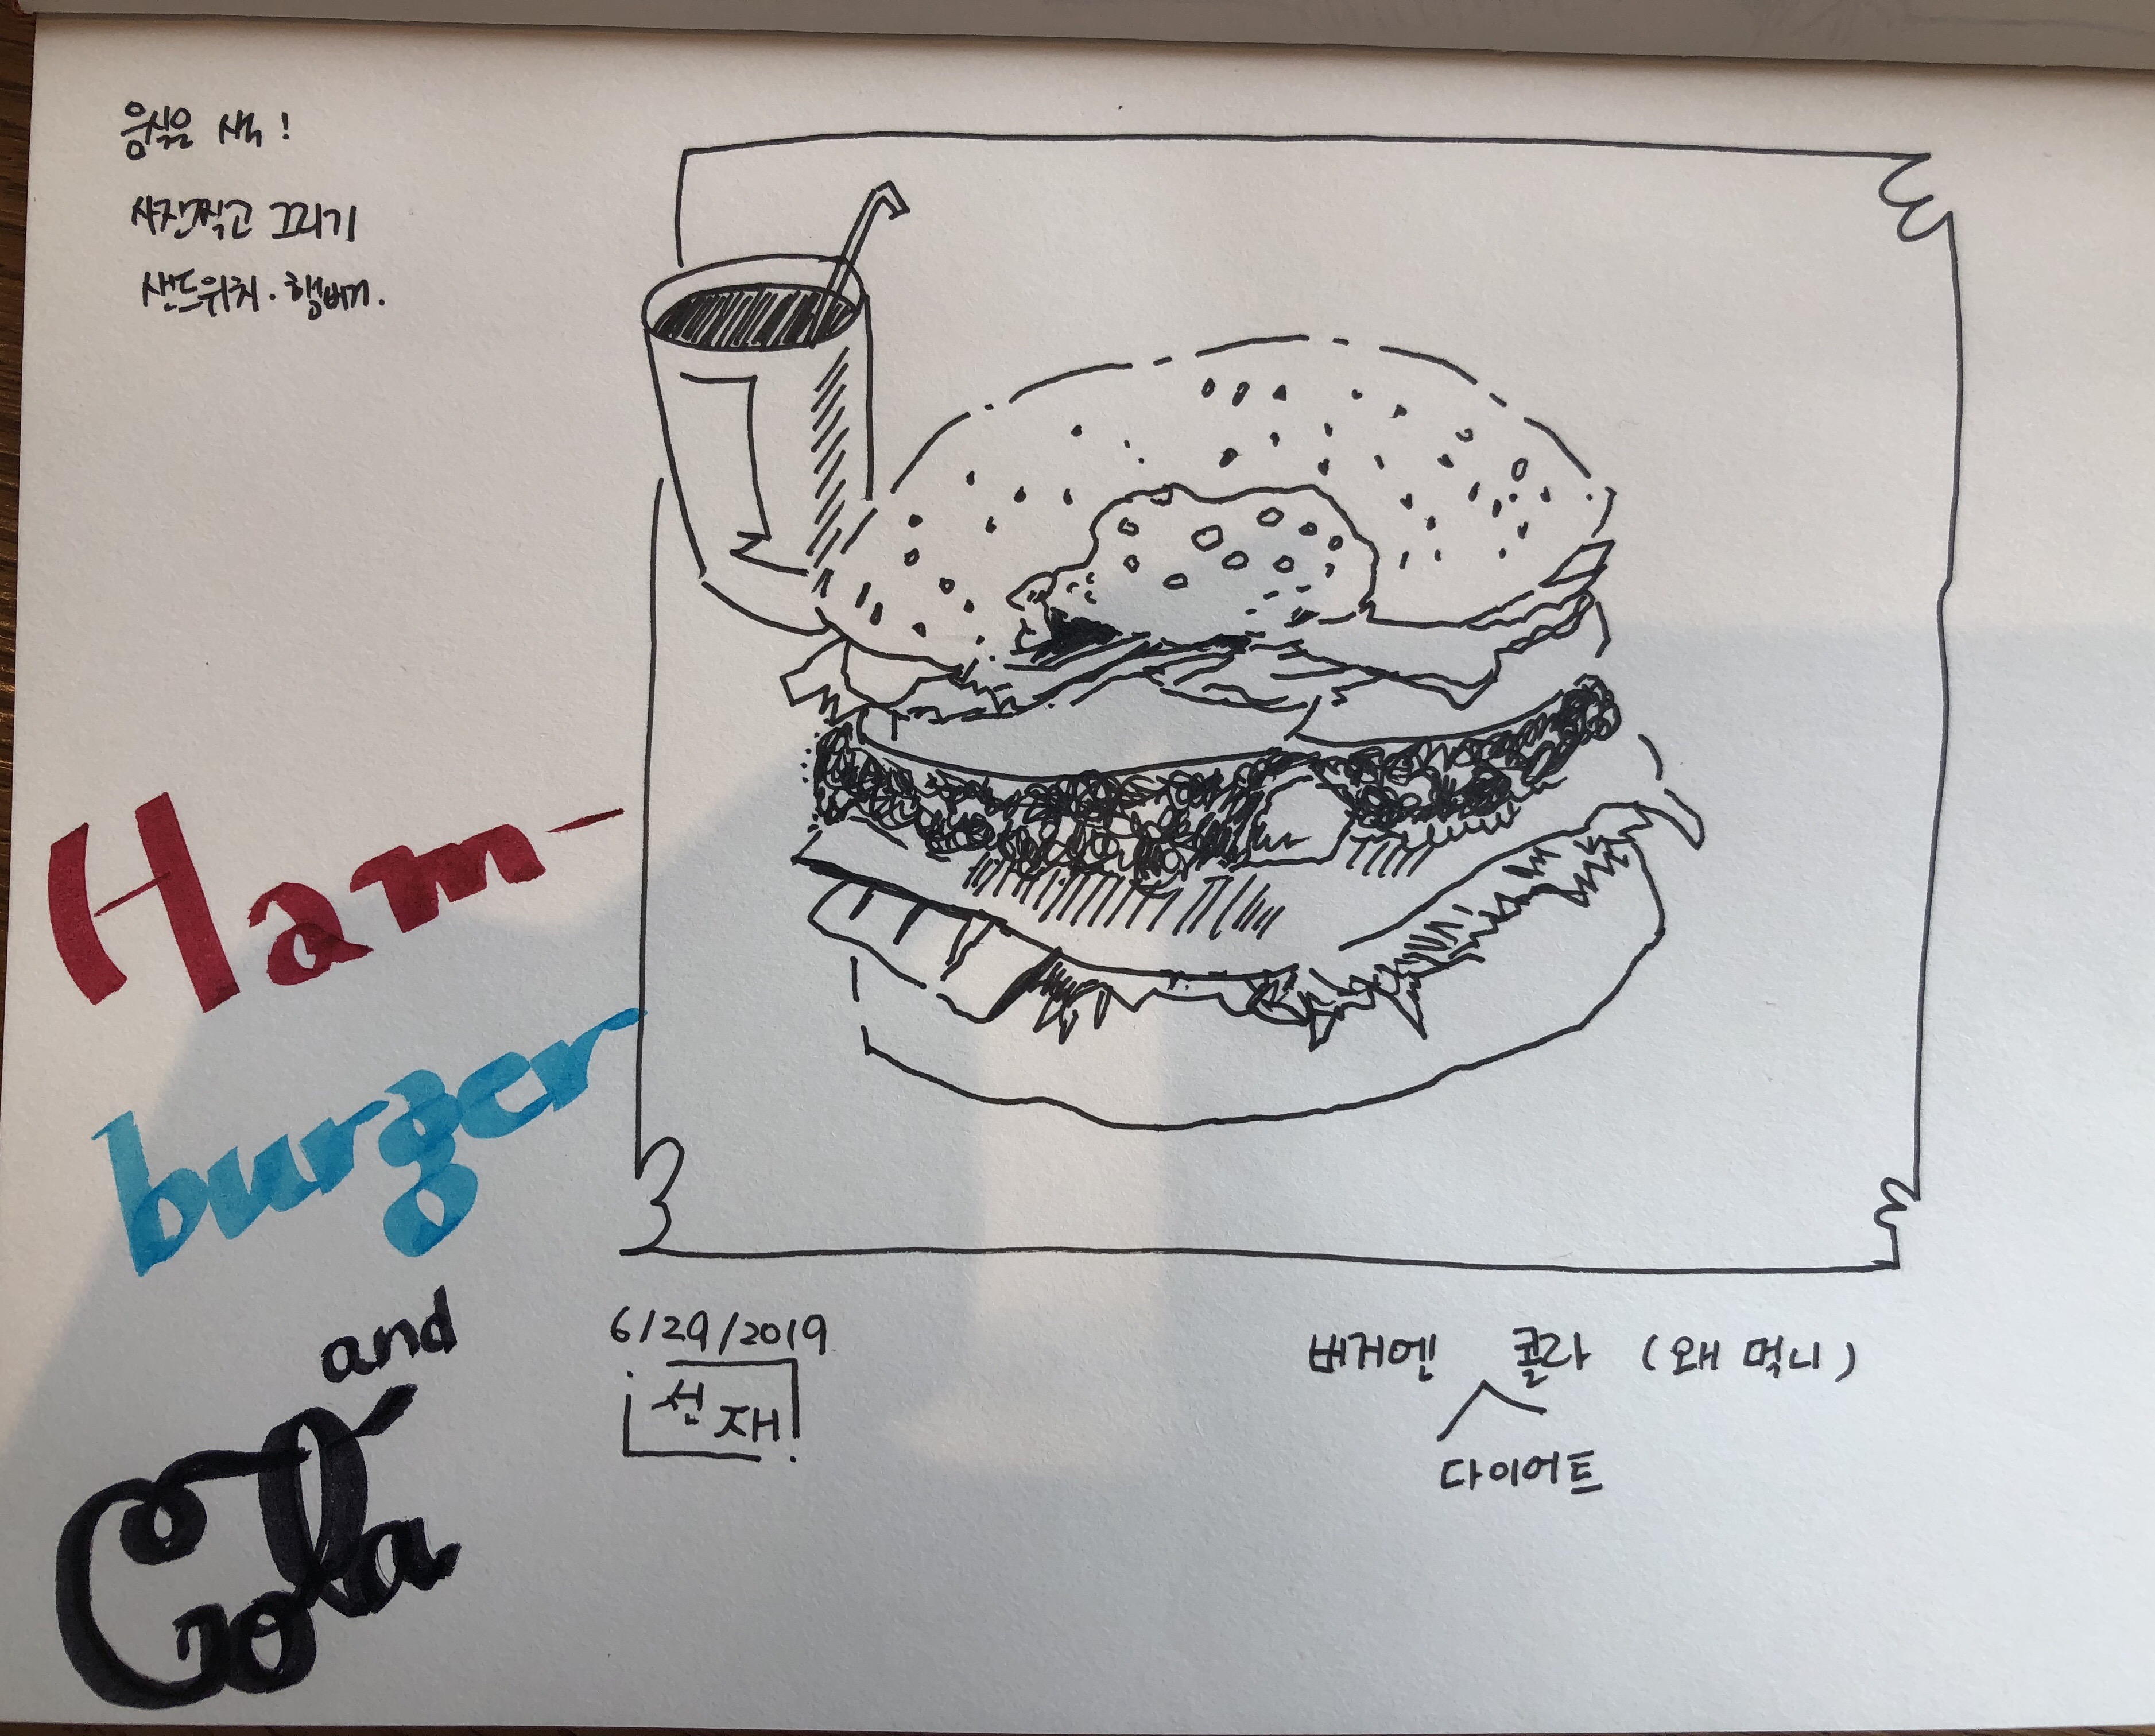 음식은 색!
사진찍고 그리기
샌드위치. 햄버거.
Ham-
burger
and
Cola
6/29/2019
선재
버거엔 콜라 (왜 먹니)
다이어트